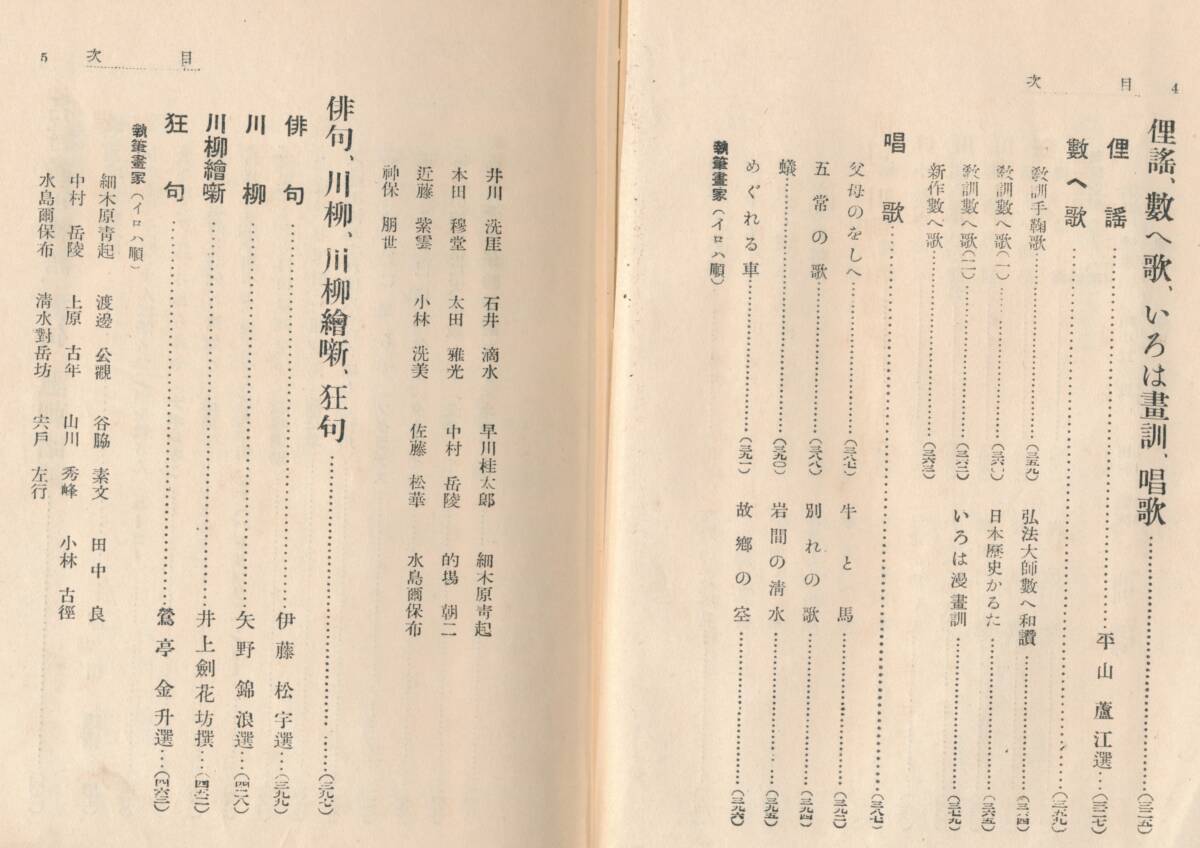 目次 4
俚謠、數へ歌、いろは畫訓、唱歌…(三二五)
俚謠…平山蘆江選…(三二七)
數へ歌…(三五九)
教訓手鞠歌…(三五九)
弘法大師數へ和讚…(三六四)
教訓數へ歌(一)…(三六一)
日本歷史かるた…(三六五)
教訓數へ歌(二)…(三六二)
いろは漫畫訓…(三七九)
新作數へ歌…(三六三)
唱歌…(三八七)
父母のをしへ…(三八七)
牛と馬…(三九二)
五常の歌…(三八八)
別れの歌…(三九四)
蟻…(三九〇)
岩間の淸水…(三九五)
めぐれる車…(三九一)
故鄕の空…(三九六)
執筆畫家(イロハ順)
井川洗厓 石井滴水 早川桂太郞 細木原靑起
本田穆堂 太田雅光 中村岳陵 的場朝二
近藤紫雲 小林洗美 佐藤松華 水島爾保布
神保朋世
目次 5
俳句、川柳、川柳繪噺、狂句…(三九七)
俳句…伊藤松宇選…(三九九)
川柳…矢野錦浪選…(四二八)
川柳繪噺…井上劍花坊撰…(四五二)
狂句…鶯亭金升選…(四六三)
執筆畫家(イロハ順)
細木原靑起 渡邊公觀 谷脇素文 田中良
中村岳陵 上原古年 山川秀峰 小林古徑
水島爾保布 淸水對岳坊 宍戶左行